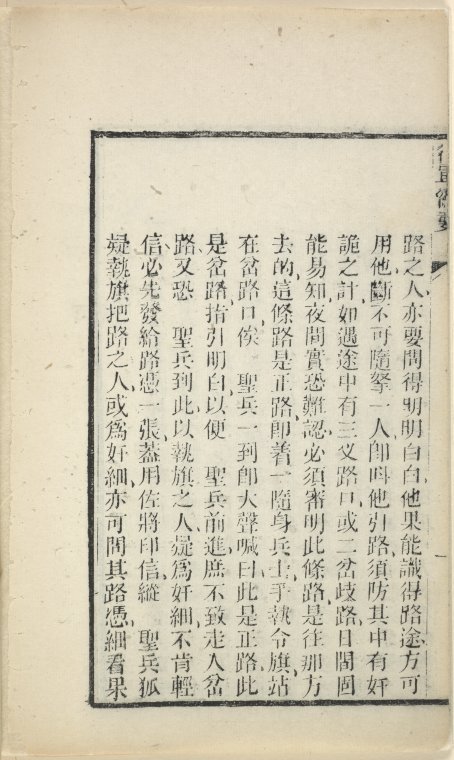 行軍總要
路之人亦要問得明明白白他果能識得路途方可
用他斷不可隨拏一人卽呌他引路須防其中有奸
詭之計如遇途中有三叉路口或二岔歧路日間固
能易知夜間實恐難認必須審明此條路是往那方
去的這條路是正路卽着一隨身兵士手執令旗站
在岔路口俟 聖兵一到卽大聲喊曰此是正路此
是岔路指引明白以便 聖兵前進庶不致走入岔
路又恐 聖兵到此以執旗之人疑爲奸細不肯輕
信必先發給路憑一張蓋用佐將印信縱 聖兵狐
疑執旗把路之人或爲奸細亦可問其路憑細看果